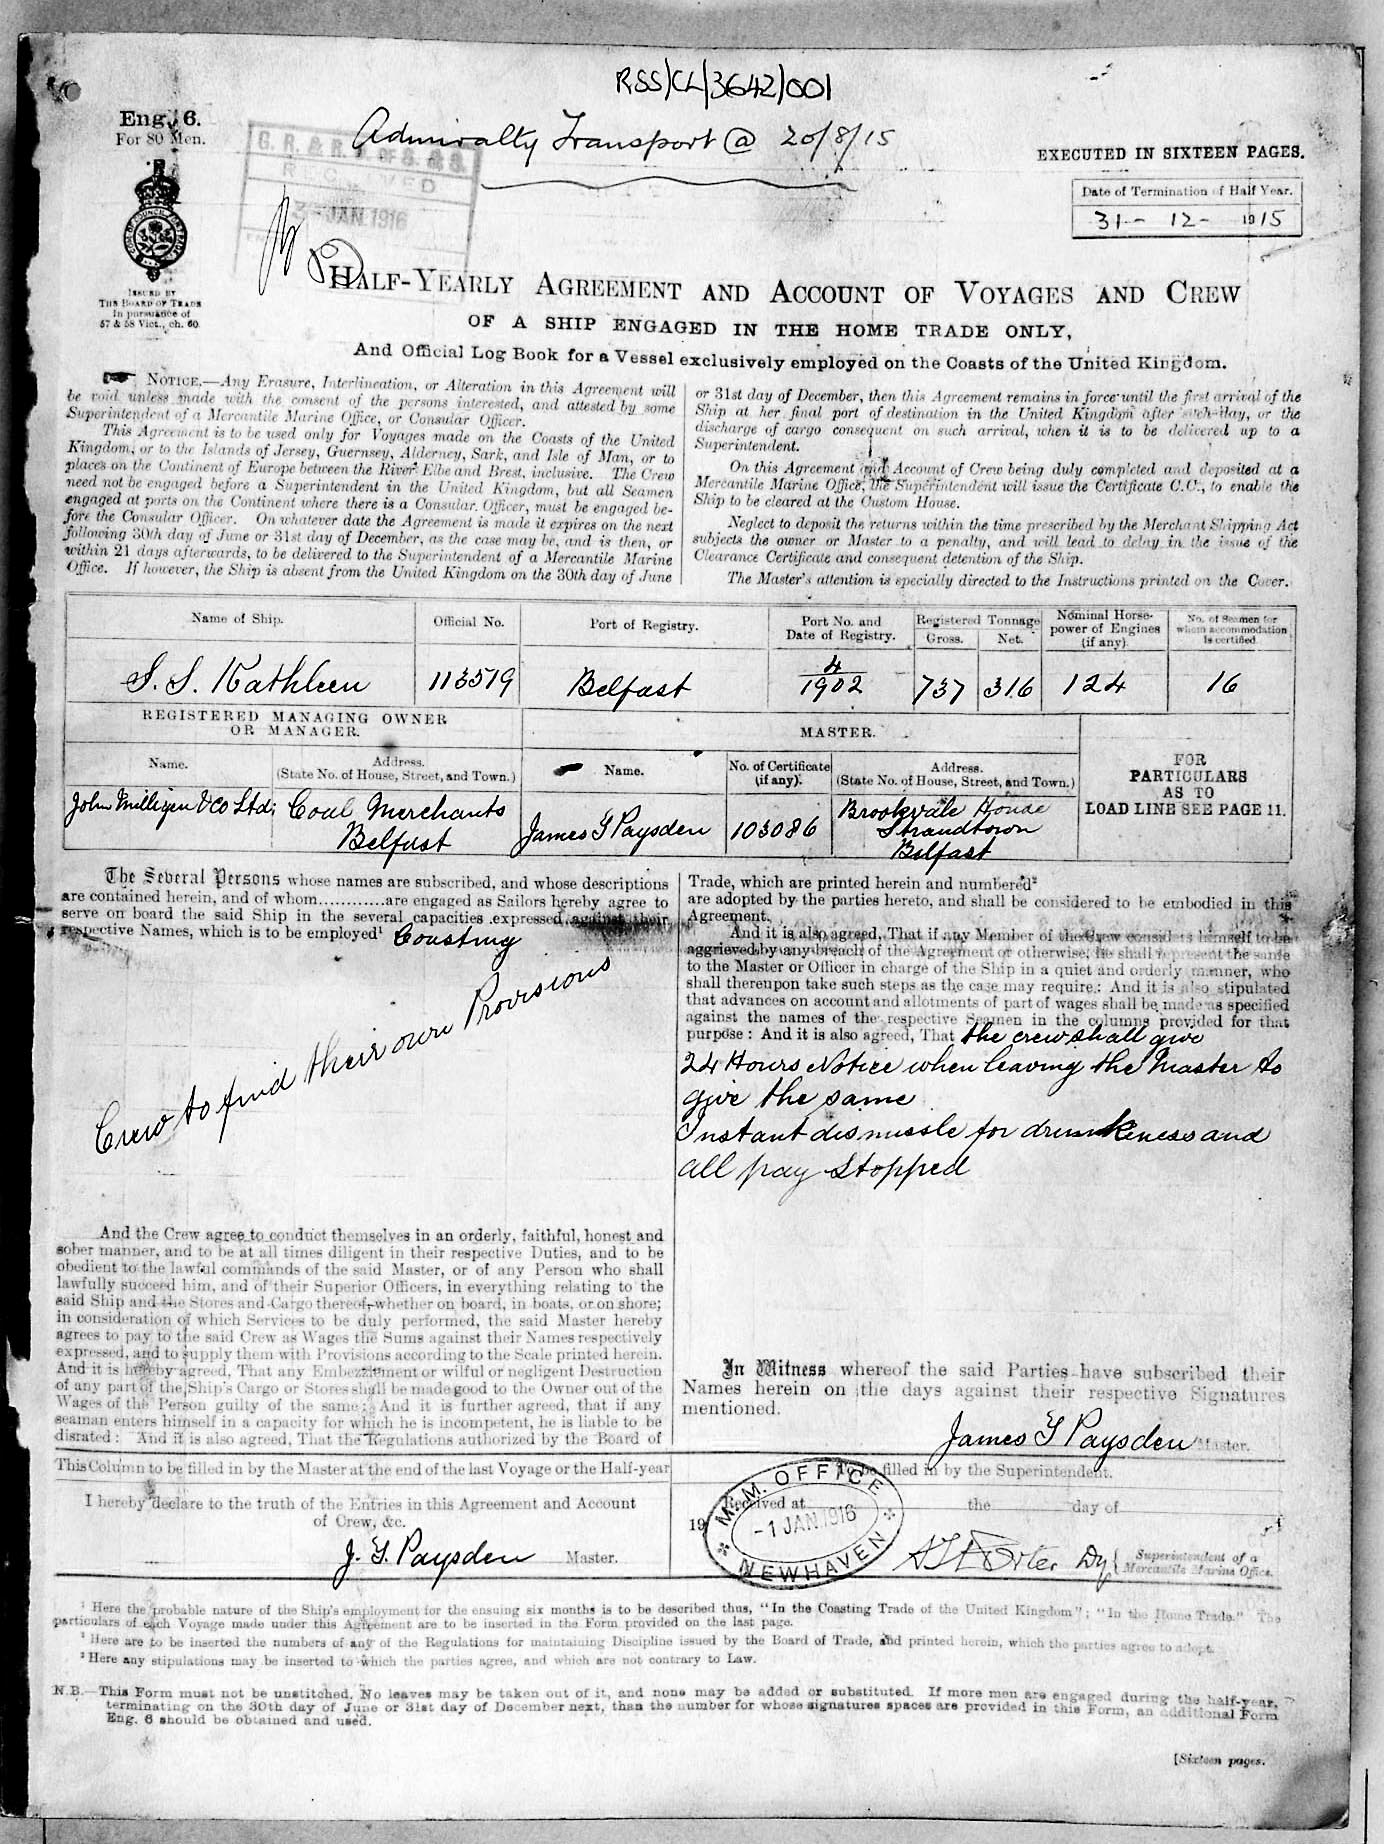 RSS/CL/3642/001
Admiralty Transport @ 20/8/15
Eng. 6.
For 80 Men.
G. R. & R. J. of S. & S.
RECEIVED
3 - JAN 1916
EXECUTED IN SIXTEEN PAGES.
Date of Termination of Half Year.
31 - 12 - 1915
ISSUED BY
THE BOARD OF TRADE
in pursuance of
57 & 58 Vict., ch. 60.
HALF-YEARLY AGREEMENT AND ACCOUNT OF VOYAGES AND CREW
OF A SHIP ENGAGED IN THE HOME TRADE ONLY,
And Official Log Book for a Vessel exclusively employed on the Coasts of the United Kingdom.
NOTICE.—Any Erasure, Interlineation, or Alteration in this Agreement will
be void unless made with the consent of the persons interested, and attested by some
Superintendent of a Mercantile Marine Office, or Consular Officer.
This Agreement is to be used only for Voyages made on the Coasts of the United
Kingdom, or to the Islands of Jersey, Guernsey, Alderney, Sark, and Isle of Man, or to
places on the Continent of Europe between the River Elbe and Brest, inclusive. The Crew
need not be engaged before a Superintendent in the United Kingdom, but all Seamen
engaged at ports on the Continent where there is a Consular Officer, must be engaged be-
fore the Consular Officer. On whatever date the Agreement is made it expires on the next
following 30th day of June or 31st day of December, as the case may be, and is then, or
within 21 days afterwards, to be delivered to the Superintendent of a Mercantile Marine
Office. If however, the Ship is absent from the United Kingdom on the 30th day of June
or 31st day of December, then this Agreement remains in force until the first arrival of the
Ship at her final port of destination in the United Kingdom after such day, or the
discharge of cargo consequent on such arrival, when it is to be delivered up to a
Superintendent.
On this Agreement and Account of Crew being duly completed and deposited at a
Mercantile Marine Office, the Superintendent will issue the Certificate C.C., to enable the
Ship to be cleared at the Custom House.
Neglect to deposit the returns within the time prescribed by the Merchant Shipping Act
subjects the owner or Master to a penalty, and will lead to delay in the issue of the
Clearance Certificate and consequent detention of the Ship.
The Master's attention is specially directed to the Instructions printed on the Cover.
Name of Ship. Official No. Port of Registry. Port No. and Date of Registry. Registered Tonnage Gross. Net. Nominal Horse-power of Engines (if any). No. of Seamen for whom accommodation is certified.
S. S. Kathleen 113579 Belfast 4/1902 737 316 124 16
REGISTERED MANAGING OWNER
OR MANAGER.
MASTER.
Name. Address. (State No. of House, Street, and Town.) Name. No. of Certificate (if any). Address. (State No. of House, Street, and Town.)
FOR
PARTICULARS
AS TO
LOAD LINE SEE PAGE 11.
John Milligen & Co Ltd; Coal Merchants Belfast James G Paysden 103086 Brookvale House Strandtown Belfast
The Several Persons whose names are subscribed, and whose descriptions
are contained herein, and of whom............are engaged as Sailors hereby agree to
serve on board the said Ship in the several capacities expressed against their
respective Names, which is to be employed¹ Coasting
Crew to find their own Provisions
And the Crew agree to conduct themselves in an orderly, faithful, honest and
sober manner, and to be at all times diligent in their respective Duties, and to be
obedient to the lawful commands of the said Master, or of any Person who shall
lawfully succeed him, and of their Superior Officers, in everything relating to the
said Ship and the Stores and Cargo thereof, whether on board, in boats, or on shore;
in consideration of which Services to be duly performed, the said Master hereby
agrees to pay to the said Crew as Wages the Sums against their Names respectively
expressed, and to supply them with Provisions according to the Scale printed herein.
And it is hereby agreed, That any Embezzlement or wilful or negligent Destruction
of any part of the Ship's Cargo or Stores shall be made good to the Owner out of the
Wages of the Person guilty of the same: And it is further agreed, that if any
seaman enters himself in a capacity for which he is incompetent, he is liable to be
disrated: And it is also agreed, That the Regulations authorized by the Board of
Trade, which are printed herein and numbered²
are adopted by the parties hereto, and shall be considered to be embodied in this
Agreement.
And it is also agreed, That if any Member of the Crew considers himself to be
aggrieved by any breach of the Agreement or otherwise, he shall represent the same
to the Master or Officer in charge of the Ship in a quiet and orderly manner, who
shall thereupon take such steps as the case may require: And it is also stipulated
that advances on account and allotments of part of wages shall be made as specified
against the names of the respective Seamen in the columns provided for that
purpose: And it is also agreed, That the crew shall give
24 Hours Notice when leaving the Master to
give the same
Instant dismissle for drunkeness and
all pay stopped
In Witness whereof the said Parties have subscribed their
Names herein on the days against their respective Signatures
mentioned.
James G Paysden Master.
This Column to be filled in by the Master at the end of the last Voyage or the Half-year
I hereby declare to the truth of the Entries in this Agreement and Account
of Crew, &c.
J. G. Paysden Master.
To be filled in by the Superintendent.
Received at the day of
19
M. M. OFFICE
- 1 JAN 1916
NEWHAVEN
Dy { Superintendent of a
Mercantile Marine Office.
¹ Here the probable nature of the Ship's employment for the ensuing six months is to be described thus, "In the Coasting Trade of the United Kingdom"; "In the Home Trade." The
particulars of each Voyage made under this Agreement are to be inserted in the Form provided on the last page.
² Here are to be inserted the numbers of any of the Regulations for maintaining Discipline issued by the Board of Trade, and printed herein, which the parties agree to adopt.
³ Here any stipulations may be inserted to which the parties agree, and which are not contrary to Law.
N.B.—This Form must not be unstitched, No leaves may be taken out of it, and none may be added or substituted. If more men are engaged during the half-year,
terminating on the 30th day of June or 31st day of December next, than the number for whose signatures spaces are provided in this Form, an additional Form
Eng. 6 should be obtained and used.
[Sixteen pages.